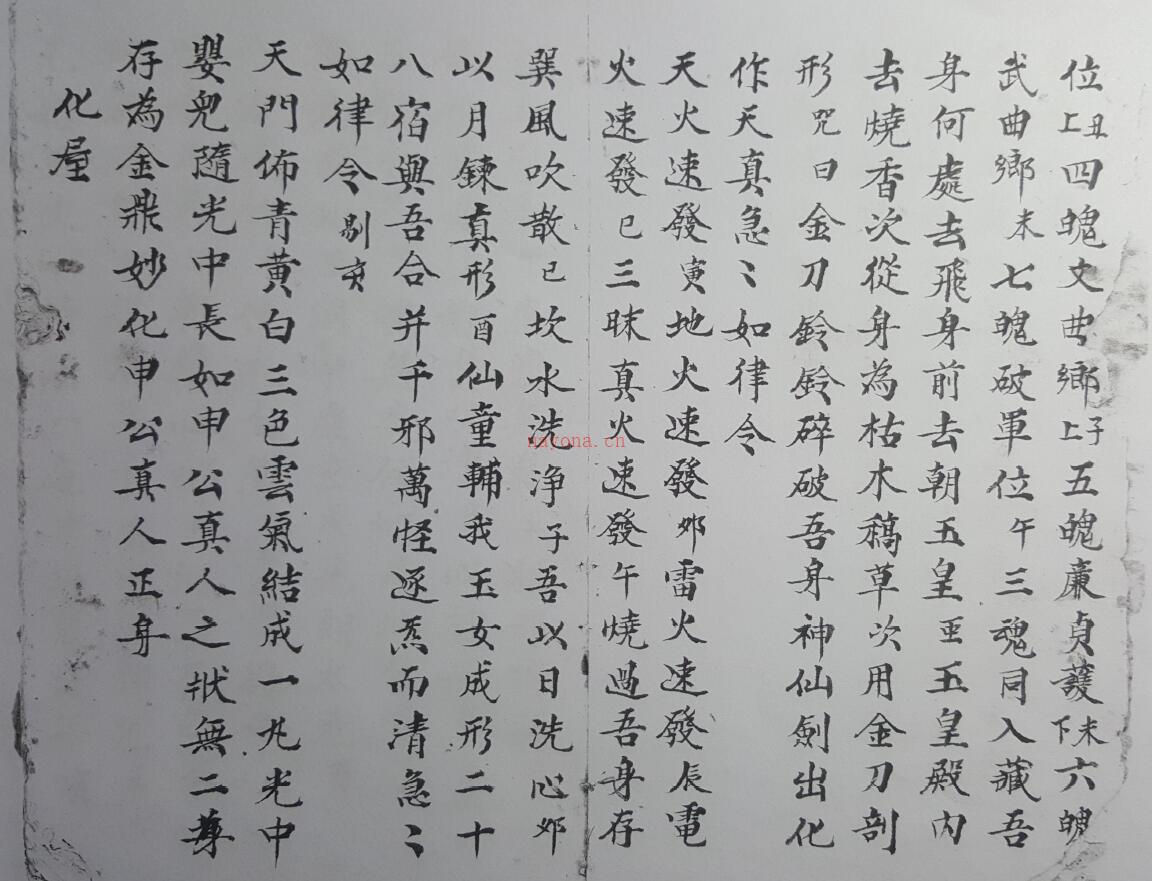 位上丑四魄文曲鄉上子五魄廉貞護下未六魄
武曲鄉未七魄破軍位午三魂同入藏吾
身何處去飛身前去朝玉皇亜玉皇殿内
去燒香次從身為枯木稿草次用金刀剖
形咒曰金刀鈴鈴碎破吾身神仙劍出化
作天真急〻如律令
天火速發寅地火速發卯雷火速發辰電
火速發巳三昧真火速發午燒過吾身存
巽風吹散巳坎水洗淨子吾以日洗心卯
以月鍊真形酉仙童輔我玉女成形二十
八宿與吾合并千邪萬怪逐炁而清急〻
如律令剔亥
天門佈青黃白三色雲氣結成一九光中
嬰兒隨光中長如申公真人之狀無二尊
存為金鼎妙化申公真人正身
化屋
nayona.cn